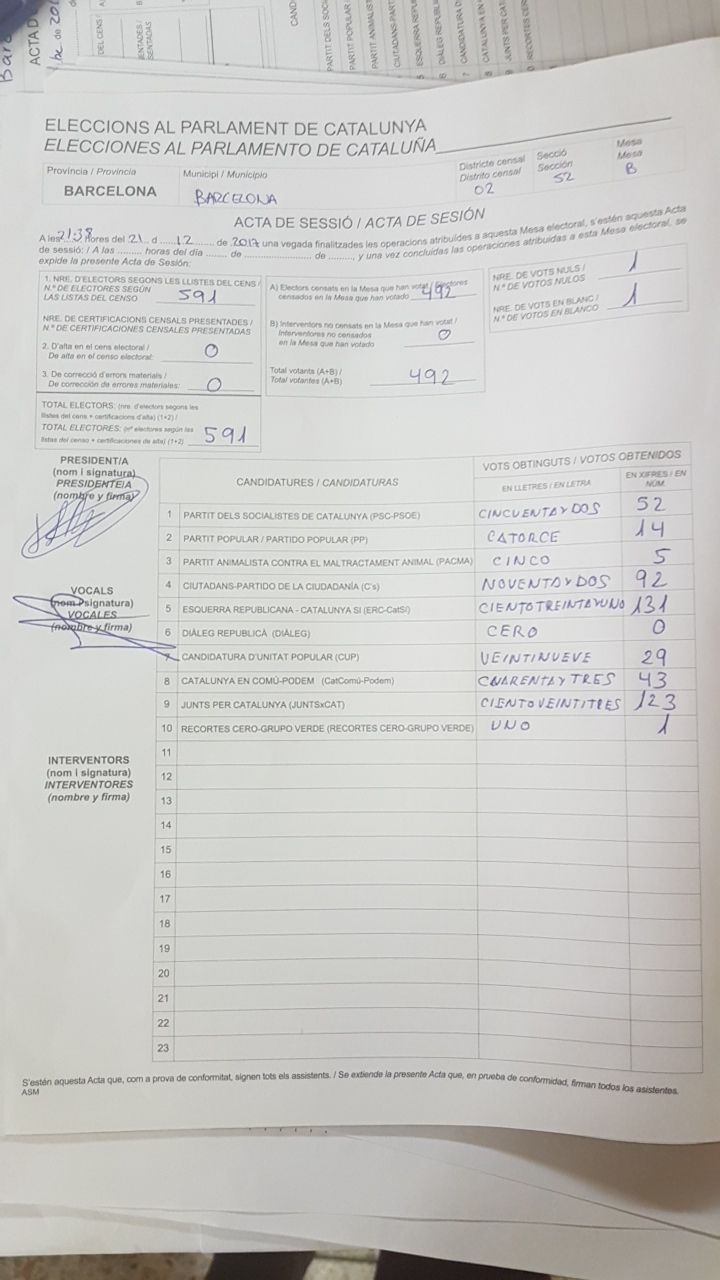 Barc
ACTA D
DEL CENS / A
ENTADES /
SENTADAS
CAND
PARTIT DELS SOC
PARTIT POPULAR /
PARTIT ANIMALIST
CIUTADANS-PART
ESQUERRA REPU
DIÀLEG REPUBLI
CANDIDATURA D
CATALUNYA EN
JUNTS PER CAT
RECORTES CER
ELECCIONS AL PARLAMENT DE CATALUNYA
ELECCIONES AL PARLAMENTO DE CATALUÑA
Província / Provincia
BARCELONA
Municipi / Municipio
BARCELONA
Districte censal
Distrito censal
02
Secció
Sección
52
Mesa
Mesa
B
ACTA DE SESSIÓ / ACTA DE SESIÓN
A les 21:38 hores del 21 d ......12...... de 2017 una vegada finalitzades les operacions atribuïdes a aquesta Mesa electoral, s'estén aquesta Acta
de sessió: / A las ......... horas del día ....... de .................... de ........, y una vez concluidas las operaciones atribuidas a esta Mesa electoral, se
expide la presente Acta de Sesión:
1. NRE. D'ELECTORS SEGONS LES LLISTES DEL CENS /
N.º DE ELECTORES SEGÚN
LAS LISTAS DEL CENSO 591
NRE. DE CERTIFICACIONS CENSALS PRESENTADES /
N.º DE CERTIFICACIONES CENSALES PRESENTADAS
2. D'alta en el cens electoral /
De alta en el censo electoral: 0
3. De correcció d'errors materials /
De corrección de errores materiales: 0
TOTAL ELECTORS: (nre. d'electors segons les
llistes del cens + certificacions d'alta) (1+2) /
TOTAL ELECTORES: (nº electores según las
listas del censo + certificaciones de alta) (1+2) 591
A) Electors censats en la Mesa que han votat / Electores
censados en la Mesa que han votado 492
B) Interventors no censats en la Mesa que han votat /
Interventores no censados
en la Mesa que han votado 0
Total votants (A+B) /
Total votantes (A+B) 492
NRE. DE VOTS NULS /
N.º DE VOTOS NULOS 1
NRE. DE VOTS EN BLANC /
N.º DE VOTOS EN BLANCO 1
PRESIDENT/A
(nom i signatura)
PRESIDENTE/A
(nombre y firma)
VOCALS
(nom i signatura)
VOCALES
(nombre y firma)
INTERVENTORS
(nom i signatura)
INTERVENTORES
(nombre y firma)
CANDIDATURES / CANDIDATURAS
VOTS OBTINGUTS / VOTOS OBTENIDOS
EN LLETRES / EN LETRA
EN XIFRES / EN
NÚM.
1 PARTIT DELS SOCIALISTES DE CATALUNYA (PSC-PSOE) CINCUENTA Y DOS 52
2 PARTIT POPULAR / PARTIDO POPULAR (PP) CATORCE 14
3 PARTIT ANIMALISTA CONTRA EL MALTRACTAMENT ANIMAL (PACMA) CINCO 5
4 CIUTADANS-PARTIDO DE LA CIUDADANÍA (C's) NOVENTA Y DOS 92
5 ESQUERRA REPUBLICANA - CATALUNYA SÍ (ERC-CatSí) CIENTO TREINTA Y UNO 131
6 DIÀLEG REPUBLICÀ (DIÀLEG) CERO 0
7 CANDIDATURA D'UNITAT POPULAR (CUP) VEINTINUEVE 29
8 CATALUNYA EN COMÚ-PODEM (CatComú-Podem) CUARENTA Y TRES 43
9 JUNTS PER CATALUNYA (JUNTSxCAT) CIENTO VEINTITRES 123
10 RECORTES CERO-GRUPO VERDE (RECORTES CERO-GRUPO VERDE) UNO 1
11
12
13
14
15
16
17
18
19
20
21
22
23
S'estén aquesta Acta que, com a prova de conformitat, signen tots els assistents. / Se extiende la presente Acta que, en prueba de conformidad, firman todos los asistentes.
ASM